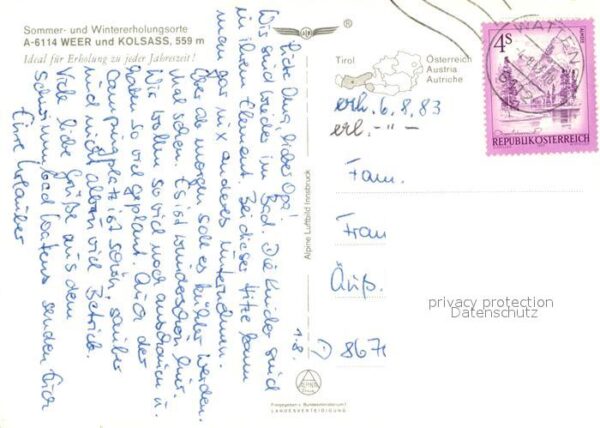 Sommer- und Wintererholungsorte
A-6114 WEER und KOLSASS, 559 m
Ideal für Erholung zu jeder Jahreszeit!
®
Tirol
Österreich
Austria
Autriche
4S
REPUBLIK ÖSTERREICH
WATTENS
erh. 6.8.83
erl. -"-
1.8.
Liebe Oma, lieber Opa!
Wir sind wieder im Bad. Die Kinder sind
in ihrem Element. Bei dieser Hitze kann
man gar nix anderes unternehmen.
Aber ab morgen soll es kühler werden.
Mal sehen. Es ist wunderschön hier.
Wir wollen so viel noch anschauen u.
haben so viel geplant. Auch der
Campingplatz ist schön, sauber
und nicht allzu viel Betrieb.
Viele liebe Grüße aus dem
Schwimmbad Wattens senden Euch
Eure Urlauber
Alpine Luftbild Innsbruck
Fam.
Frau
Äuß.
D 867
privacy protection
Datenschutz
Freigegeben v. Bundesministerium f.
LANDESVERTEIDIGUNG